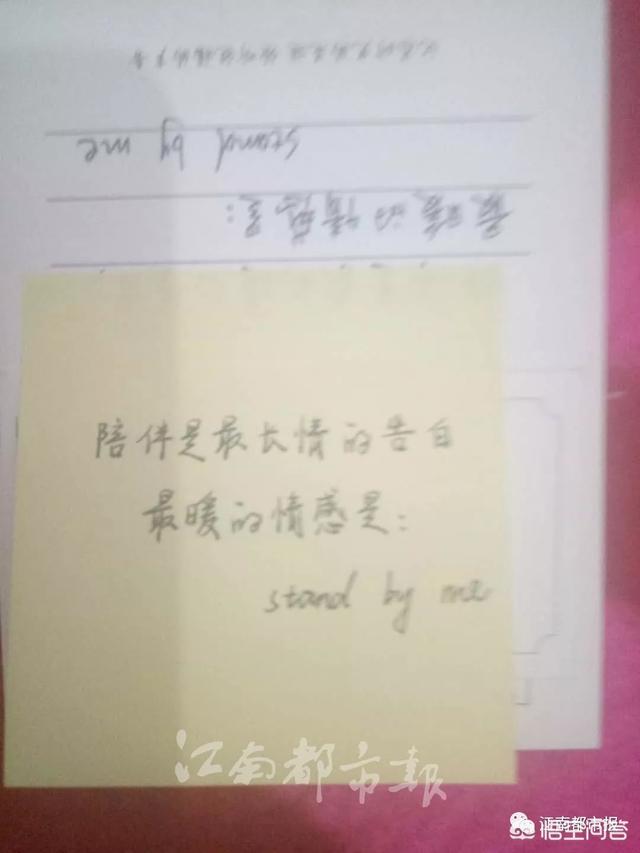 stand by me
最暖的情感是：
陪伴是最长情的告白
最暖的情感是：
stand by me
江南都市報
江南都市报
悟空问答